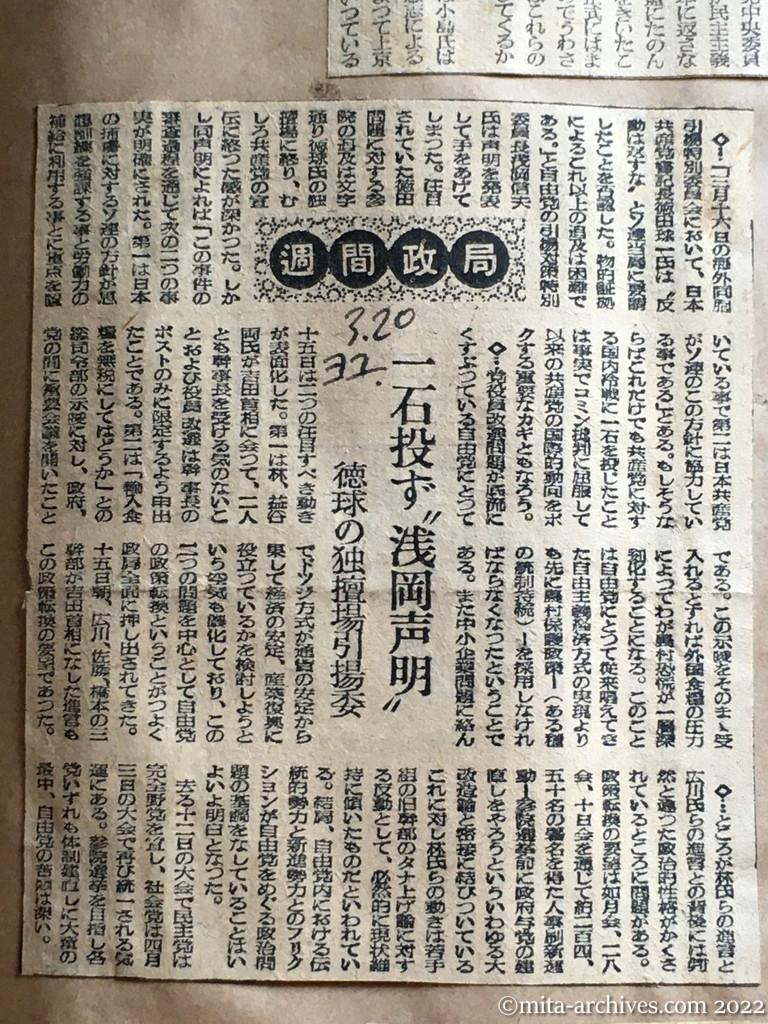 党中央委員
民主主義
に返さな
をきいたこ
盟にたのん
正式にはま
でうわさ
どこれらの
てくるか
小島氏は
による
つて上京
いつている
週間政局
3.20
一石投ず〝浅岡声明〟
徳球の独擅場引揚委
海外同胞
引揚特別委員会において、日本
共産党書記長徳田球一氏は〝反
動は返すな〟とソ連当局に要請
したことを再認した。物的証拠
によるこれ以上の追及は困難で
ある。」と自由党の引揚対策特別
委員長浅岡信夫
氏は声明を発表
して手をあげて
しまつた。注目
されていた徳田
問題に対する参
院の追及は文字
通り徳球氏の独
擅場に終り、む
しろ共産党の宣
伝に終つた感が深かつた。しか
し同声明によれば「この事件の
審査過程を通じて次の二つの事
実が明確にされた。第一は日本
の捕虜に対するソ連の方針が思
想訓練を強課する事と労働力の
補給に利用する事とに重点を置
いている事で第二は日本共産党
がソ連のこの方針に協力してい
る事である」とある。もしそうな
らばこれだけでも共産党に対す
る国内冷戦に一石を投じたこと
は事実でコミン批判に屈服して
以来の共産党の国際的動向をボ
クする重要なカギともなろう。
◇…党役員改選問題が底流に
くすぶつている自由党にとつて
十五日は二つの注目すべき動き
が表面化した。第一は林、益谷
両氏が吉田首相に会つて、二人
とも幹事長を受ける気のないこ
とおよび役員改選は幹事長の
ポストのみに限定するよう申出
たことである。第二は「輸入食
糧を無税にしてはどうか」との
総司令部の示唆に対し、政府、
党の間に重要会議を開いたこと
である。この示唆をそのまゝ受
入れるとすれば外国食糧の圧力
によつてわが農村恐慌が一層深
刻化することになる。このこと
は自由党にとつて従来唱えてき
た自由主義経済方式の実現より
も先に農村保護政策―(ある種
の統制持続)―を採用しなけれ
ばならなくなつたということで
ある。また中小企業問題に絡ん
でドツジ方式が通貨の安定から
果して経済の安定、産業復興に
役立つているかを検討しようと
いう空気も醸化しており、この
二つの問題を中心として自由党
の政策転換ということがつよく
政局全面に押し出されてきた。
十五日朝、広川、佐藤、橋本の三
幹部が吉田首相になした進言も
この政策転換の要望であつた。
◇…ところが林氏らの進言と
広川氏らの進言との背後には判
然と違つた政治的性格がかくさ
れているところに問題がある。
政策転換の要望は如月会、一八
会、十日会を通じて約二百四、
五十名の署名を得た人事刷新運
動―参院選挙前に政府与党の建
直しをやろうといういわゆる大
改造論と密接に結びついている
これに対し林氏らの動きは若手
組の旧幹部のタナ上げ論に対す
る反動として、必然的に現状維
持に傾いたものだといわれてい
る。結局、自由党内における伝
統的勢力と新進勢力とのフリク
ションが自由党をめぐる政治問
題の基調をなしていることはい
よいよ明白となつた。
去る十二日の大会で民主党は
完全野党を宣し、社会党は四月
三日の大会で再び統一される気
運にある。参院選挙を目指し各
党いずれも体制建直しに大童の
最中、自由党の苦悶は深い。
©mita-archives.com 2022